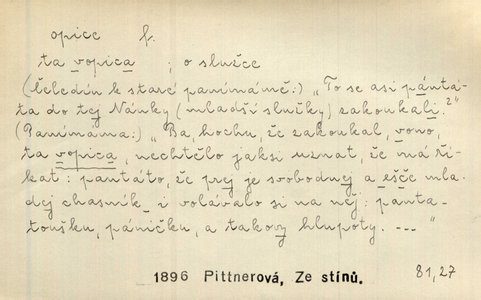 opice f.
ta vopica ; o služce
(Čeledín k staré panímámě:) „To se asi pantá-
ta do tej Nánky (mladší služky) zakoukali?"
(Panímáma:) „Ba, hochu, že zakoukal, vono,
ta vopica, nechtělo jaksi uznat, že má ří-
kat: pantáto, že prej je svobodnej a ešče mla-
dej chasník i volávalo si na něj: panta-
toušku, páníčku, a takovy hlupoty. –––"
1896 Pittnerová, Ze stínů. 81,27